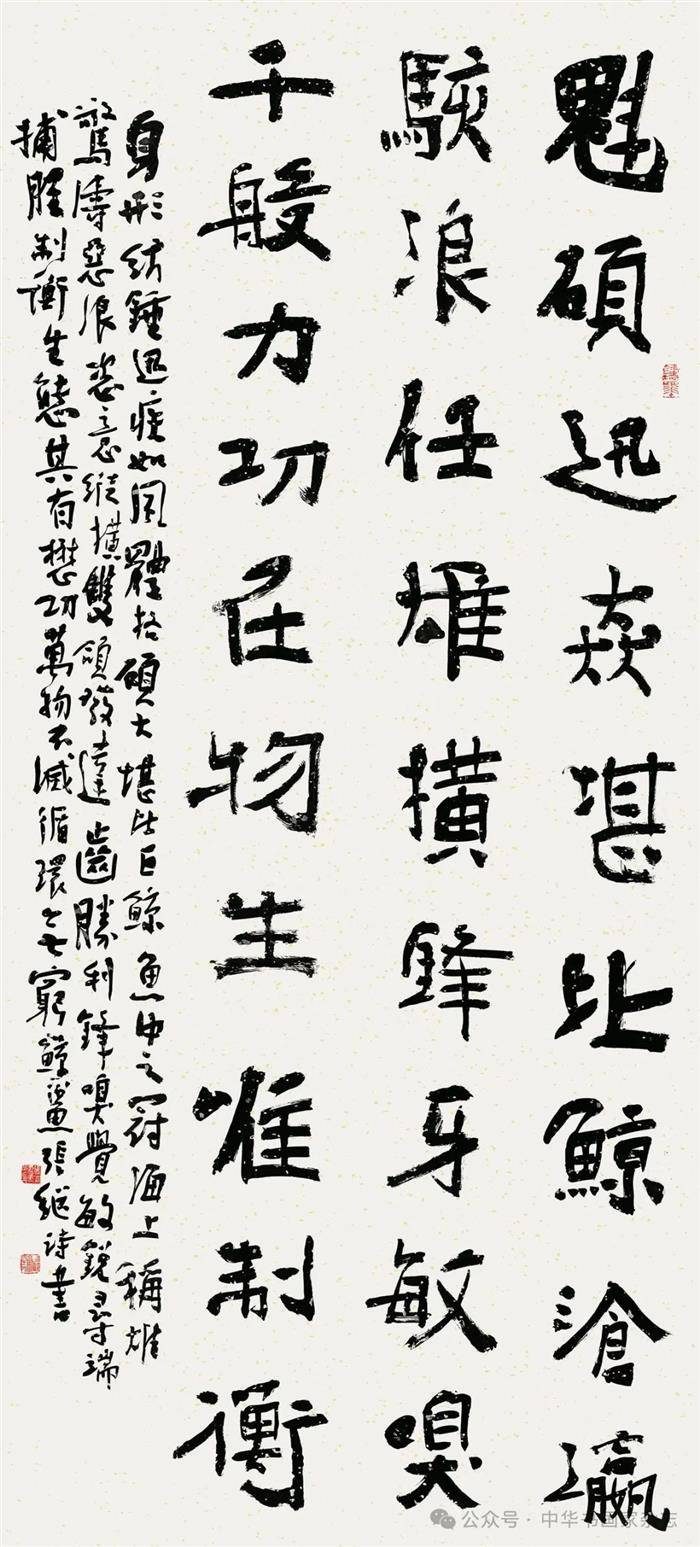 魁碩迅猋堪比鯨滄瀛
駭浪任雄橫鋒牙敏嗅
千般力功在物生唯制衡
身形紡錘迅疾如風體格碩大堪比巨鯨魚中之冠海上稱雄
驚濤惡浪恣意縱橫雙頜發達齒勝利鋒嗅覺敏銳尋端
捕腥制衡生態其有懋功萬物不滅循環無窮鯨鯊張繼詩書
公众号·中华书画家杂志